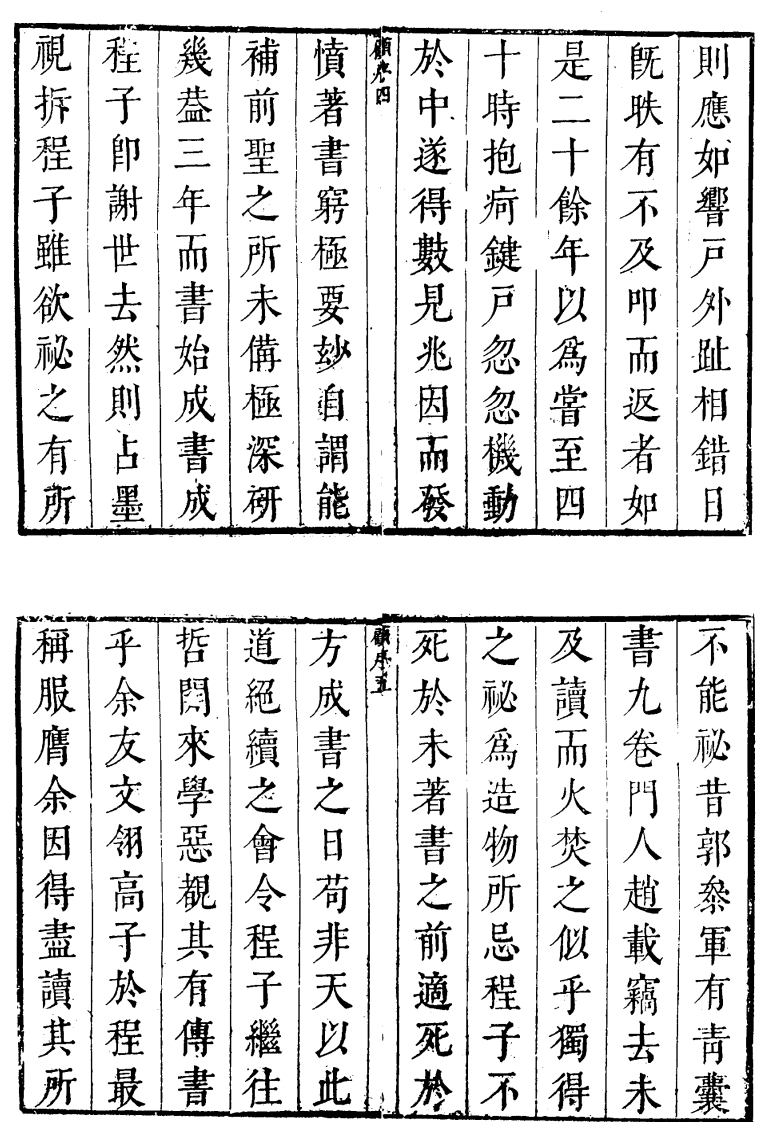 則應如響戸外趾相錯日
旣昳有不及叩而返者如
是二十餘年以爲嘗至四
十時抱疴鍵戸忽忽機動
於中遂得數見兆因而發
顧序四
憤著書窮極要玅自謂能
補前聖之所未備極深硏
幾葢三年而書始成書成
程子卽謝世去然則占墨
視拆程子雖欲祕之有所
不能祕昔郭叅軍有靑囊
書九卷門人趙載竊去未
及讀而火焚之似乎獨得
之祕爲造物所忌程子不
死於未著書之前適死於
顧序五
方成書之日苟非天以此
道絕續之會令程子繼往
哲開來學惡覩其有傳書
乎余友文翎高子於程最
稱服膺余因得盡讀其所